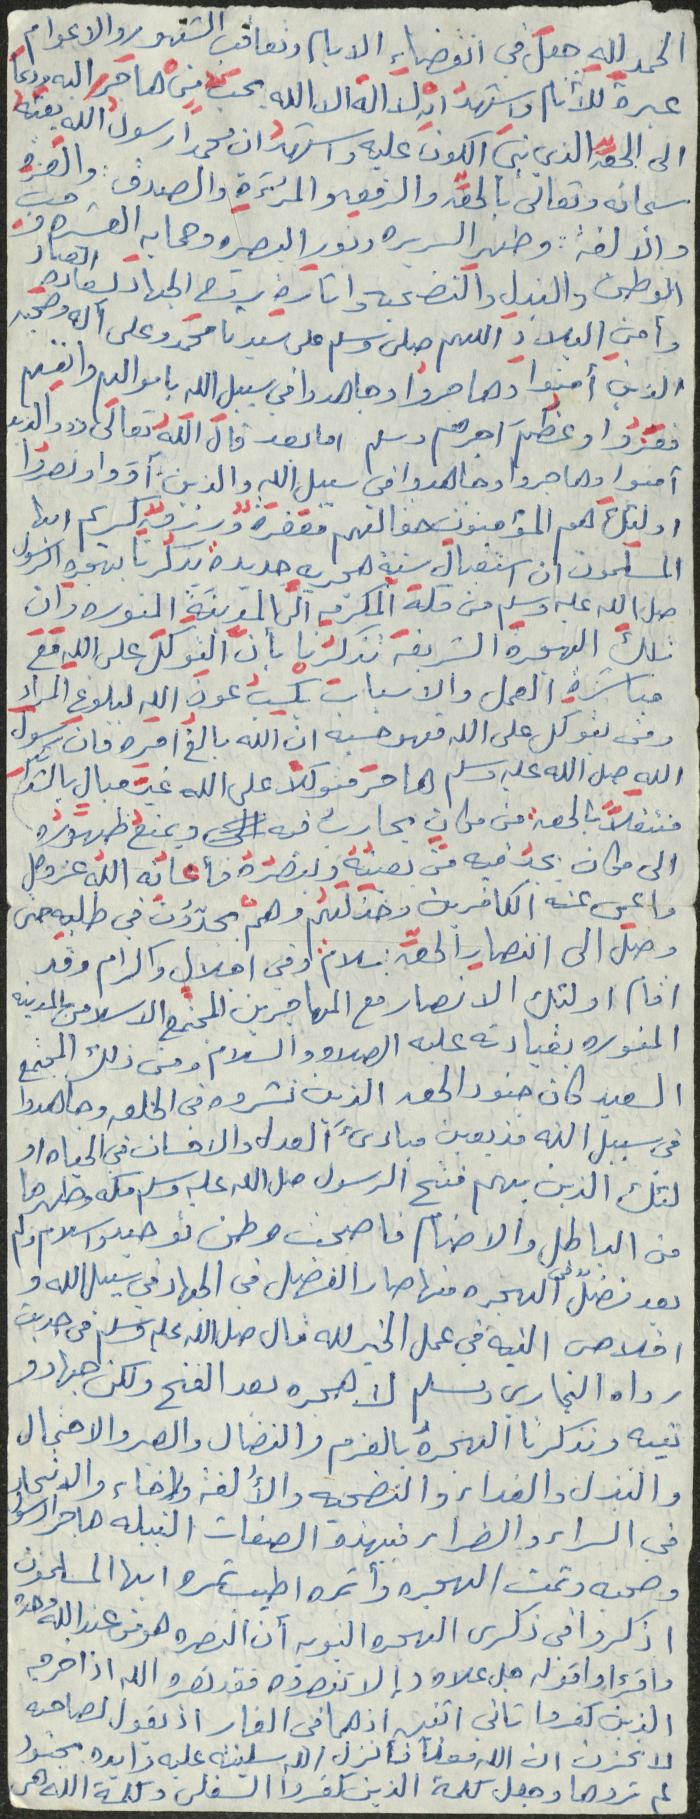 الحمد لله جعل في انقضاء الايام وتعاقب الشهور والاعوام
عبرة للأنام واشهد ان لا اله الا الله يحب من هاجر اليه ودعا
الى الحق الذي بنى الكون عليه واشهد ان محمدا رسول الله بعثه
سبحانه وتعالى بالحق والرفعه والمبرة والصدق والعزة
والالفة وطهر السريره ونور البصيره وصحابه العشره حب
الوطن والبذل والتضحيه واثارة روح الجهاد لسعادة العباد
وأمن البلاد اللهم صلي وسلم على سيدنا محمد وعلى آله وصحبه
الذين آمنوا وهاجروا وجاهدوا في سبيل الله باموالهم وانفسهم
فعزوا وعظم اجرهم وسلم اما بعد قال الله تعالى والذين
آمنوا وهاجروا وجاهدوا في سبيل الله والذين آووا ونصروا
اولئك هم المؤمنون حقا لهم مغفرة ورزق كريم ايها
المسلمون ان استقبال سنة هجريه جديدة يذكرنا بهجرة الرسول
صل الله عليه وسلم من مكة المكرمه الى المدينة المنوره وان
تلك الهجرة الشريفة تذكرنا بأن التوكل على الله مع
مباشرة العمل والاسباب يكسب عون الله لبلوغ المراد
ومن يتوكل على الله فهو حسبه ان الله بالغ امره فان رسول
الله صل الله عليه وسلم هاجر متوكلا على الله غير مبال بالشدائد
متنقلا بالحق من مكان يحارب فيه ويمنع ظهوره
الى مكان يجد فيه من يعينه وينصره فأعانه الله عز وجل
واعمى عنه الكافرين وخذلهم وهم يجدون في طلبه حتى
وصل الى انتصار الحق بسلام وفي اجلال واكرام وقد
اقام اولئك الانصار مع المهاجرين المجتمع الاسلامي بالمدينه
المنوره بقيادته عليه الصلاه والسلام ومن ذلك المجتمع
السعيد كان جنود الحق الذين نشروه في الخلق وجاهدوا
في سبيل الله مذيعين مبادئ العدل والاحسان في الحياه او
لئك الذين بهم فتح الرسول صل الله عليه وسلم مكه وطهرها
من الباطل والاصنام فاصبحت وطن توحيد واسلام ولم
يعد فضل في الهجره منها صار الفضل في الجهاد في سبيل الله و
اخلاص النية في عمل الخير لله قال صل الله عليه وسلم في حديث
رواه البخاري ومسلم لا هجره بعد الفتح ولكن جهاد و
نيه وتذكرنا الهجرة بالعزم والنضال والصبر والاحتمال
والبذل والفداء والتضحيه والألفة والإخاء والاتحاد
في السراء والضراء فبهذه الصفات النبيله هاجر الرسول
وصحبه وتمت الهجره وأثمره اطيب ثمره ايها المسلمون
اذكروا في ذكرى الهجره النبويه أن النصره هو من عند الله وحده
واقرءوا قوله جل علاه إلا تنصروه فقد نصره الله اذ اخرجه
الذين كفروا ثاني اثنين إذ هما في الغار اذ يقول لصاحبه
لا تحزن ان الله معنا فأنزل الله سكينته عليه وايده بجنود
لم تروها وجعل كلمة الذين كفروا السفلى وكلمة الله هي